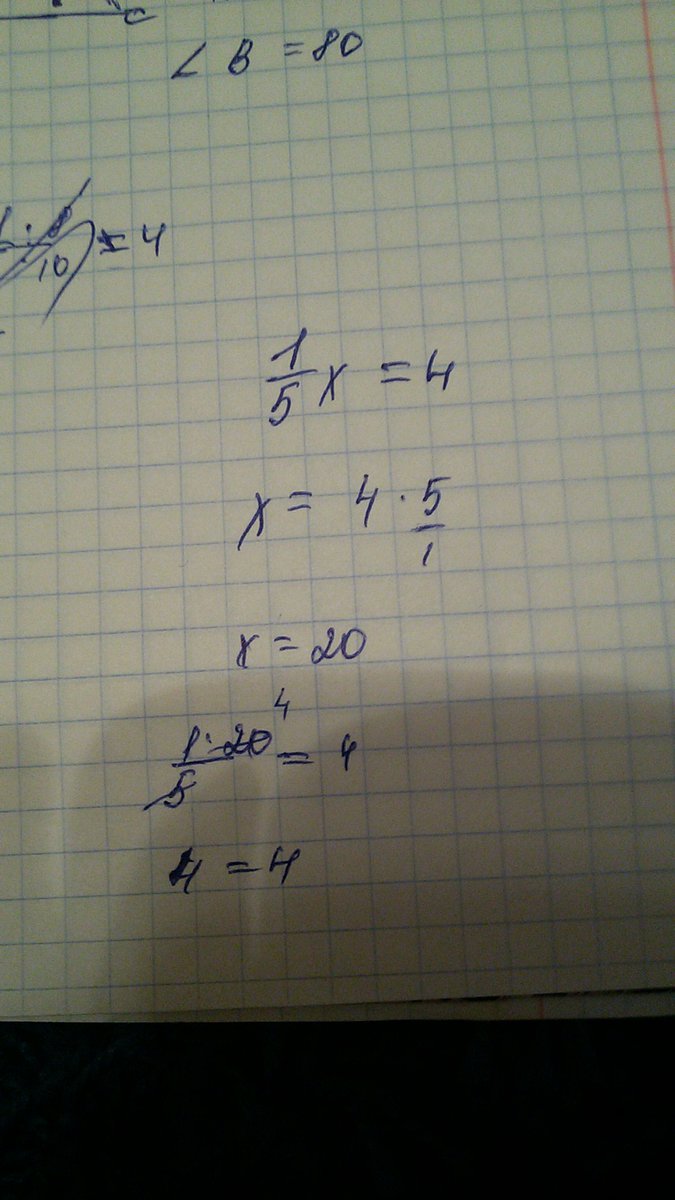 c
∠ B = 80
10 = 4
1/5 x = 4
x = 4 · 5/1
x = 20
4
1 · 20/5 = 4
4 = 4